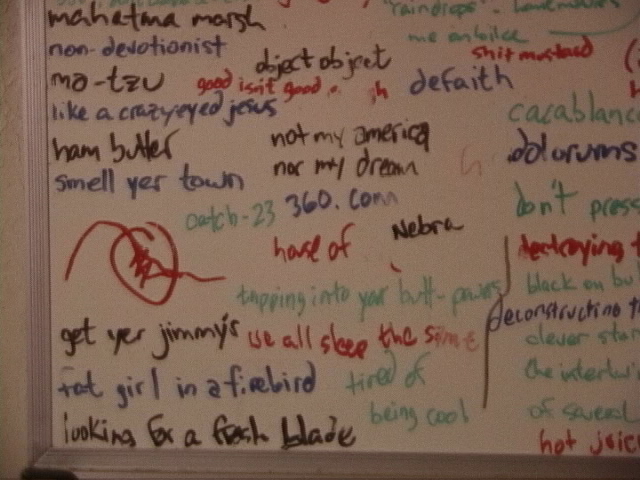 "raindrops"
mahatma marsh
me an bilce
non-devotionist
object object
shit mustard
ma-tzu
good isn't good.
defaith
like a crazyeyed jesus
cacablanc
ham butter
not my america
nor my dream
dolorums
smell yer town
catch-23
360.com
don't press
Nebra
house of
destroying
tapping into your butt-powers
black on bu
deconstructing
get yer jimmy's
we all sleep the same
clever star
fat girl in a firebird
tired of
being cool
the intertwi
of several
looking for a fresh blade
hot juic